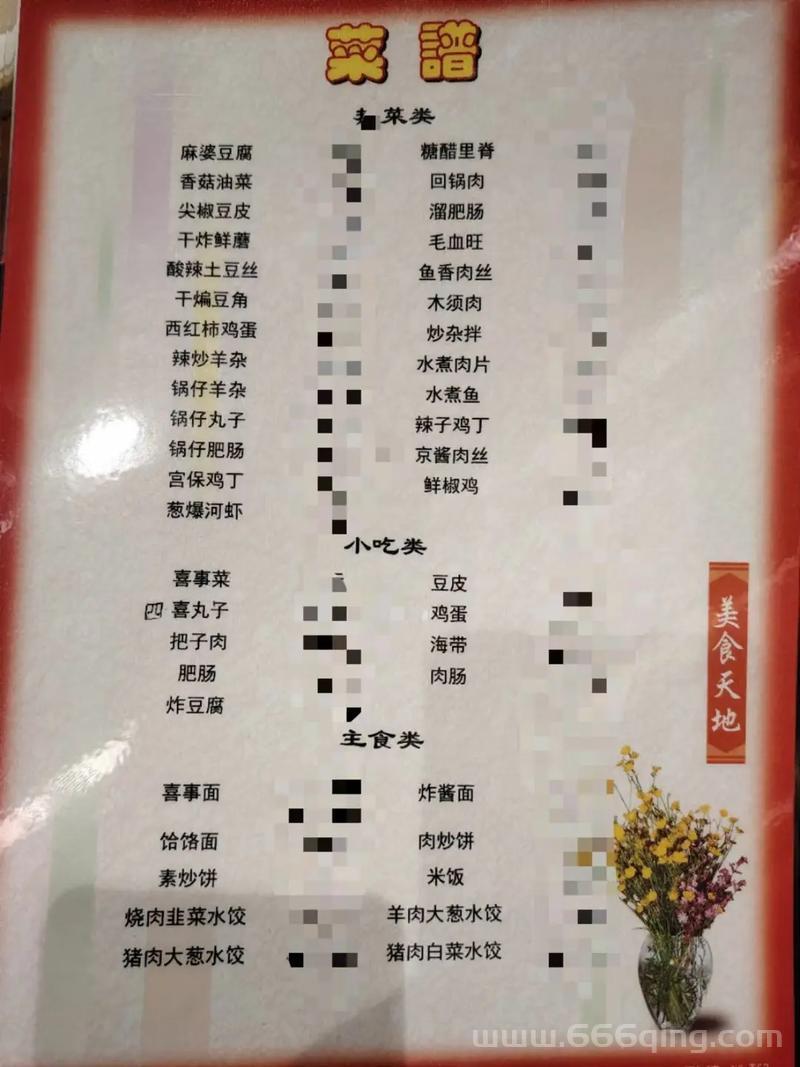 菜 譜
菜类
麻婆豆腐 糖醋里脊
香菇油菜 回锅肉
尖椒豆皮 溜肥肠
干炸鲜蘑 毛血旺
酸辣土豆丝 鱼香肉丝
干煸豆角 木须肉
西红柿鸡蛋 炒杂拌
辣炒羊杂 水煮肉片
锅仔羊杂 水煮鱼
锅仔丸子 辣子鸡丁
锅仔肥肠 京酱肉丝
宫保鸡丁 鲜椒鸡
葱爆河虾
小吃类
喜事菜 豆皮
四喜丸子 鸡蛋
把子肉 海带
肥肠 肉肠
炸豆腐
主食类
喜事面 炸酱面
饸饹面 肉炒饼
素炒饼 米饭
烧肉韭菜水饺 羊肉大葱水饺
猪肉大葱水饺 猪肉白菜水饺
美食天地
www.666qing.com